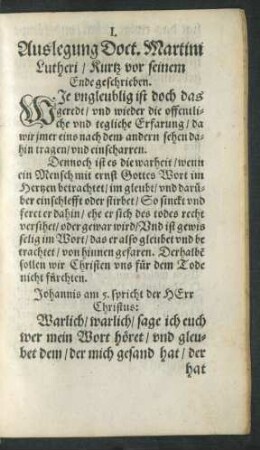 I.
Auslegung Doct. Martini
Lutheri / Kurtz vor seinem
Ende geschrieben.
WJe vngleublig ist doch das
geredt / vnd wieder die offentli-
che vnd tegliche Erfarung / da
wir jmer eins nach dem andern sehen da-
hin tragen / vnd einscharren.
Dennoch ist es die warheit / wenn
ein Mensch mit ernst Gottes Wort im
Hertzen betrachtet / im gleubt / vnd darü-
ber einschlefft oder stirbet / So sinckt vnd
feret er dahin / ehe er sich des todes recht
versihet / oder gewar wird / Vnd ist gewis
selig im Wort / das er also gleubet vnd be
trachtet / von hinnen gefaren. Derhalbē
sollen wir Christen vns für dem Tode
nicht fürchten.
Johannis am 5. spricht der HErr
Christus:
Warlich / warlich / sage ich euch
wer mein Wort höret / vnd gleu-
bet dem / der mich gesand hat / der
hat